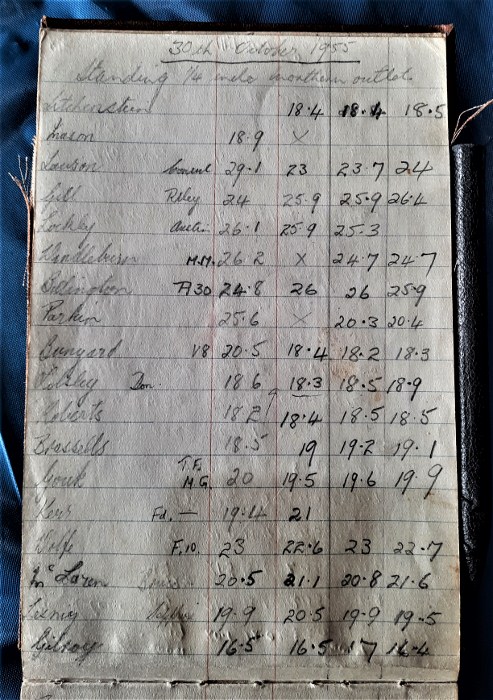 30th October 1955
Standing 1/4 mile northern outlet
Litchenstein 18.4 18.4 18.5
Mason 18.9 X
Lawson 29.1 23 23.7 24
Gill Riley 24 25.9 25.9 26.4
Lockley Austin 26.1 25.9 25.3
M.M. 26.2 X 24.7 24.7
A30 24.8 26 26 25.9
Parkin 25.6 X 20.3 20.4
Bunyard V8 20.5 18.4 18.2 18.3
Don. 18.6 18.3 18.5 18.9
Roberts 18.2 18.4 18.5 18.5
18.5 19 19.2 19.1
T.F.
Gouk M.G. 20 19.5 19.6 19.9
Kerr Fd. — 19.4 21
Wolfe F.10. 23 22.6 23 22.7
McLaren 20.5 21.1 20.8 21.6
19.9 20.5 19.9 19.5
Gilroy 16.5 16.5 17 16.4